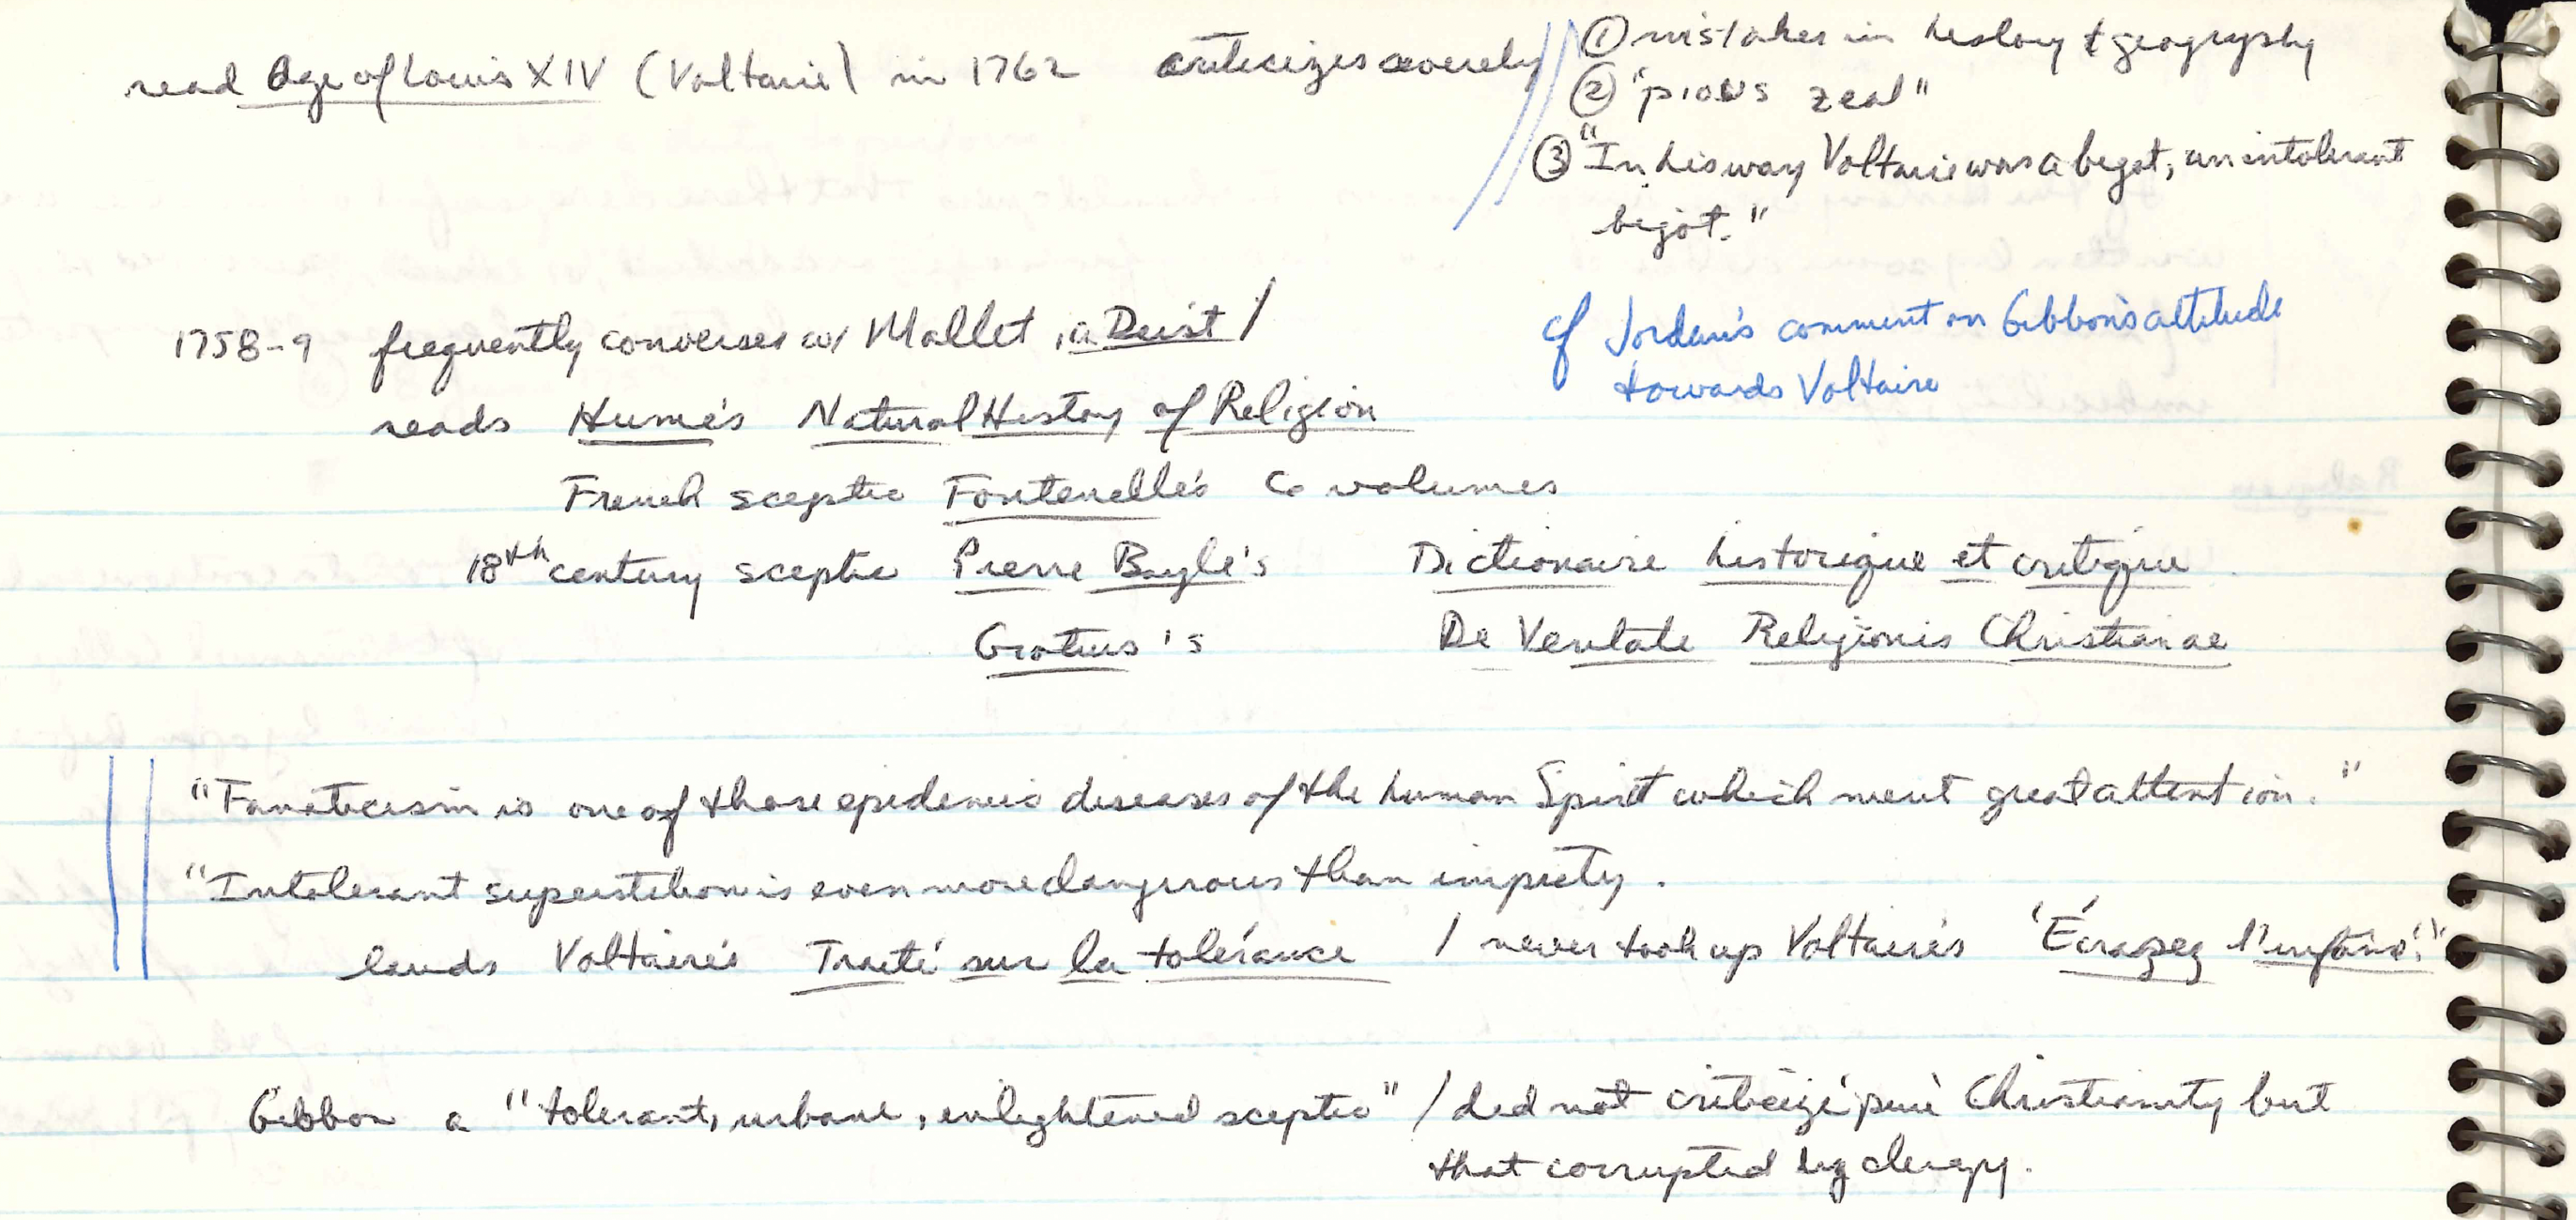 read Age of Louis XIV (Voltaire) in 1762 criticizes severely
① mistakes in history & geography
② "pious zeal"
③ "In his way Voltaire was a bigot, an intolerant
bigot."
cf Jordan's comment on Gibbon's attitude
towards Voltaire
1758-9 frequently converses w/ Mallet, a Deist /
reads Hume's Natural History of Religion
French sceptic Fontenelle's 6 volumes
18th century sceptic Pierre Bayle's Dictionaire historique et critique
Grotius's De Veritate Religionis Christianae
"Fanaticism is one of those epidemic diseases of the human Spirit which merit great attention."
"Intolerant superstition is even more dangerous than impiety.
lauds Voltaire's Traité sur la tolérance / never took up Voltaire's 'Écrasez l'infâme!'"
Gibbon a "tolerant, urbane, enlightened sceptic" / did not criticize 'pure' Christianity but
that corrupted by clergy.